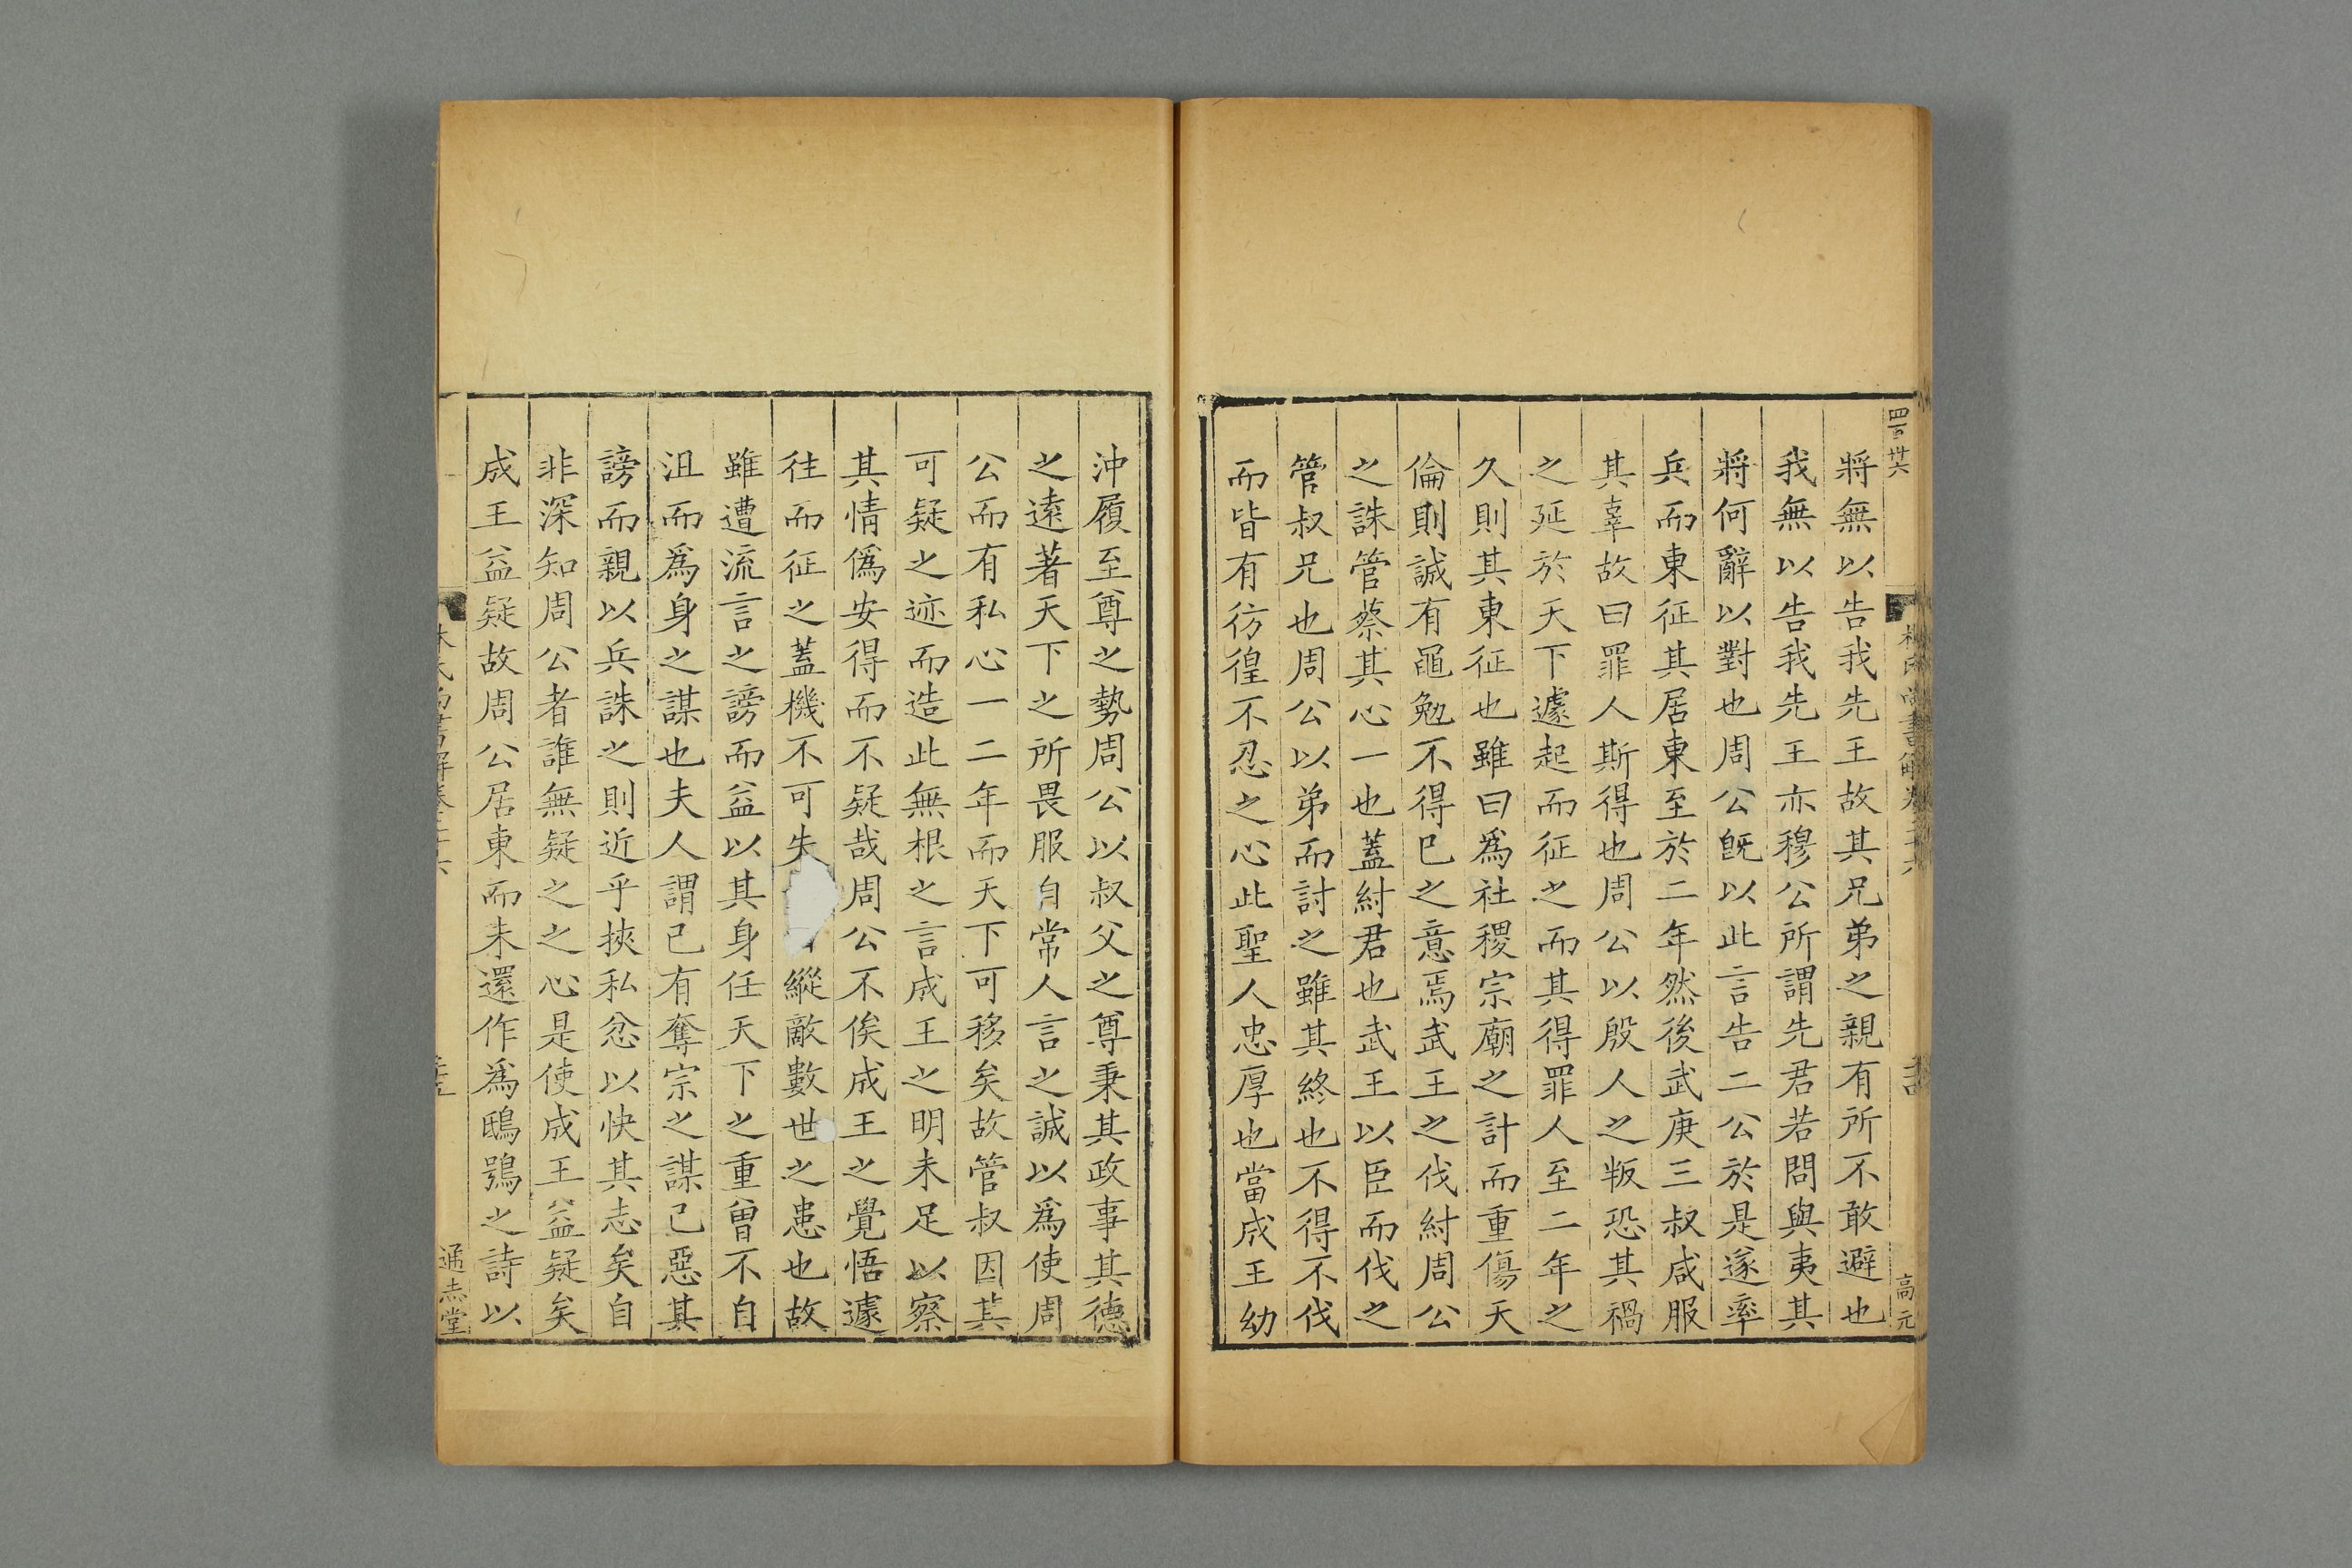 四百廿六
林氏尚書解卷二十六
高元
將無以告我先王故其兄弟之親有所不敢避也
我無以告我先王亦穆公所謂先君若問與夷其
將何辭以對也周公旣以此言告二公於是遂率
兵而東征其居東至於二年然後武庚三叔咸服
其辜故曰罪人斯得也周公以殷人之叛恐其禍
之延於天下遽起而征之而其得罪人至二年之
久則其東征也雖曰爲社稷宗廟之計而重傷天
倫則誠有黽勉不得已之意焉武王之伐紂周公
之誅管蔡其心一也蓋紂君也武王以臣而伐之
管叔兄也周公以弟而討之雖其終也不得不伐
而皆有彷徨不忍之心此聖人忠厚也當成王幼
沖履至尊之勢周公以叔父之尊秉其政事其德
之遠著天下之所畏服自常人言之誠以爲使周
公而有私心一二年而天下可移矣故管叔因其
可疑之迹而造此無根之言成王之明未足以察
其情僞安得而不疑哉周公不俟成王之覺悟遽
往而征之蓋機不可失縱敵數世之患也故
雖遭流言之謗而益以其身任天下之重曾不自
沮而爲身之謀也夫人謂己有奪宗之謀己惡其
謗而親以兵誅之則近乎挾私忿以快其志矣自
非深知周公者誰無疑之之心是使成王益疑矣
成王益疑故周公居東而未還作爲鴟鴞之詩以
林氏尚書解卷二十六
通志堂